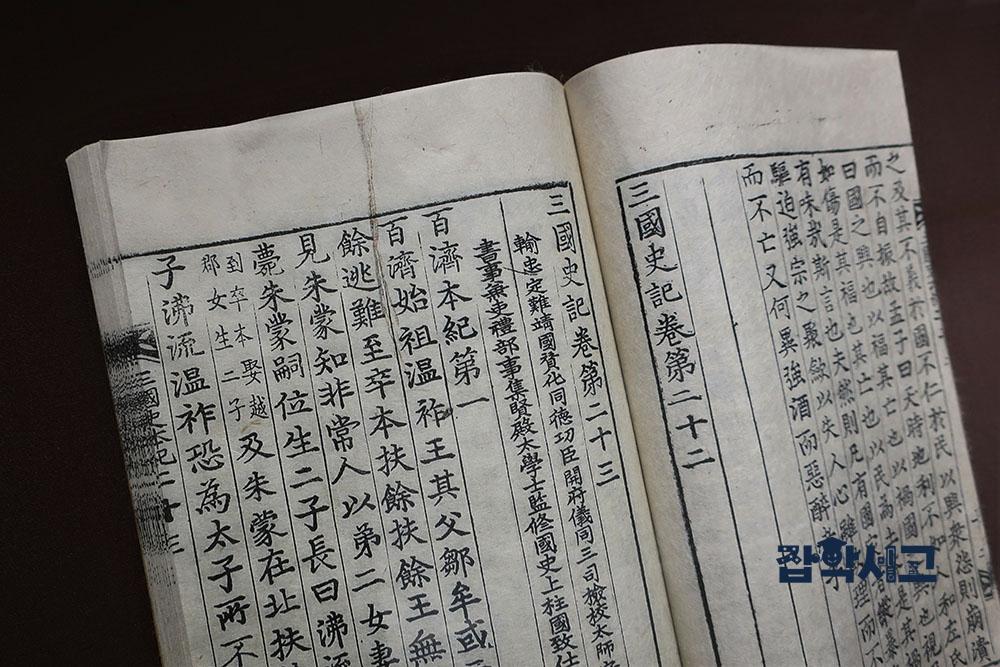 之及其不義於國不仁於民以興衆怨則崩潰
而不自振故孟子曰天時地利不如人和左氏
曰國之興也以福其亡也以禍國之興也視民
如傷是其福也其亡也以民爲土芥是其禍
有味哉斯言也夫然則凡有國家者
驅迫強宗之聚歛以失人心雖理而
而不亡又何異強酒而惡醉
三國史記卷第二十二
三國史記卷第二十三
輸忠定難靖國贊化同德功臣開府儀同三司檢校太師
書事兼吏禮部事集賢殿太學士監修國史上柱國致仕
百濟本紀第一
百濟始祖溫祚王其父鄒牟或
餘逃難至卒本扶餘扶餘王無
見朱蒙知非常人以第二女妻
薨朱蒙嗣位生二子長曰沸流
到卒本娶越
郡女生二子
及朱蒙在北扶
子沸流溫祚恐為太子所不
三國史本紀二十三
잡학사고